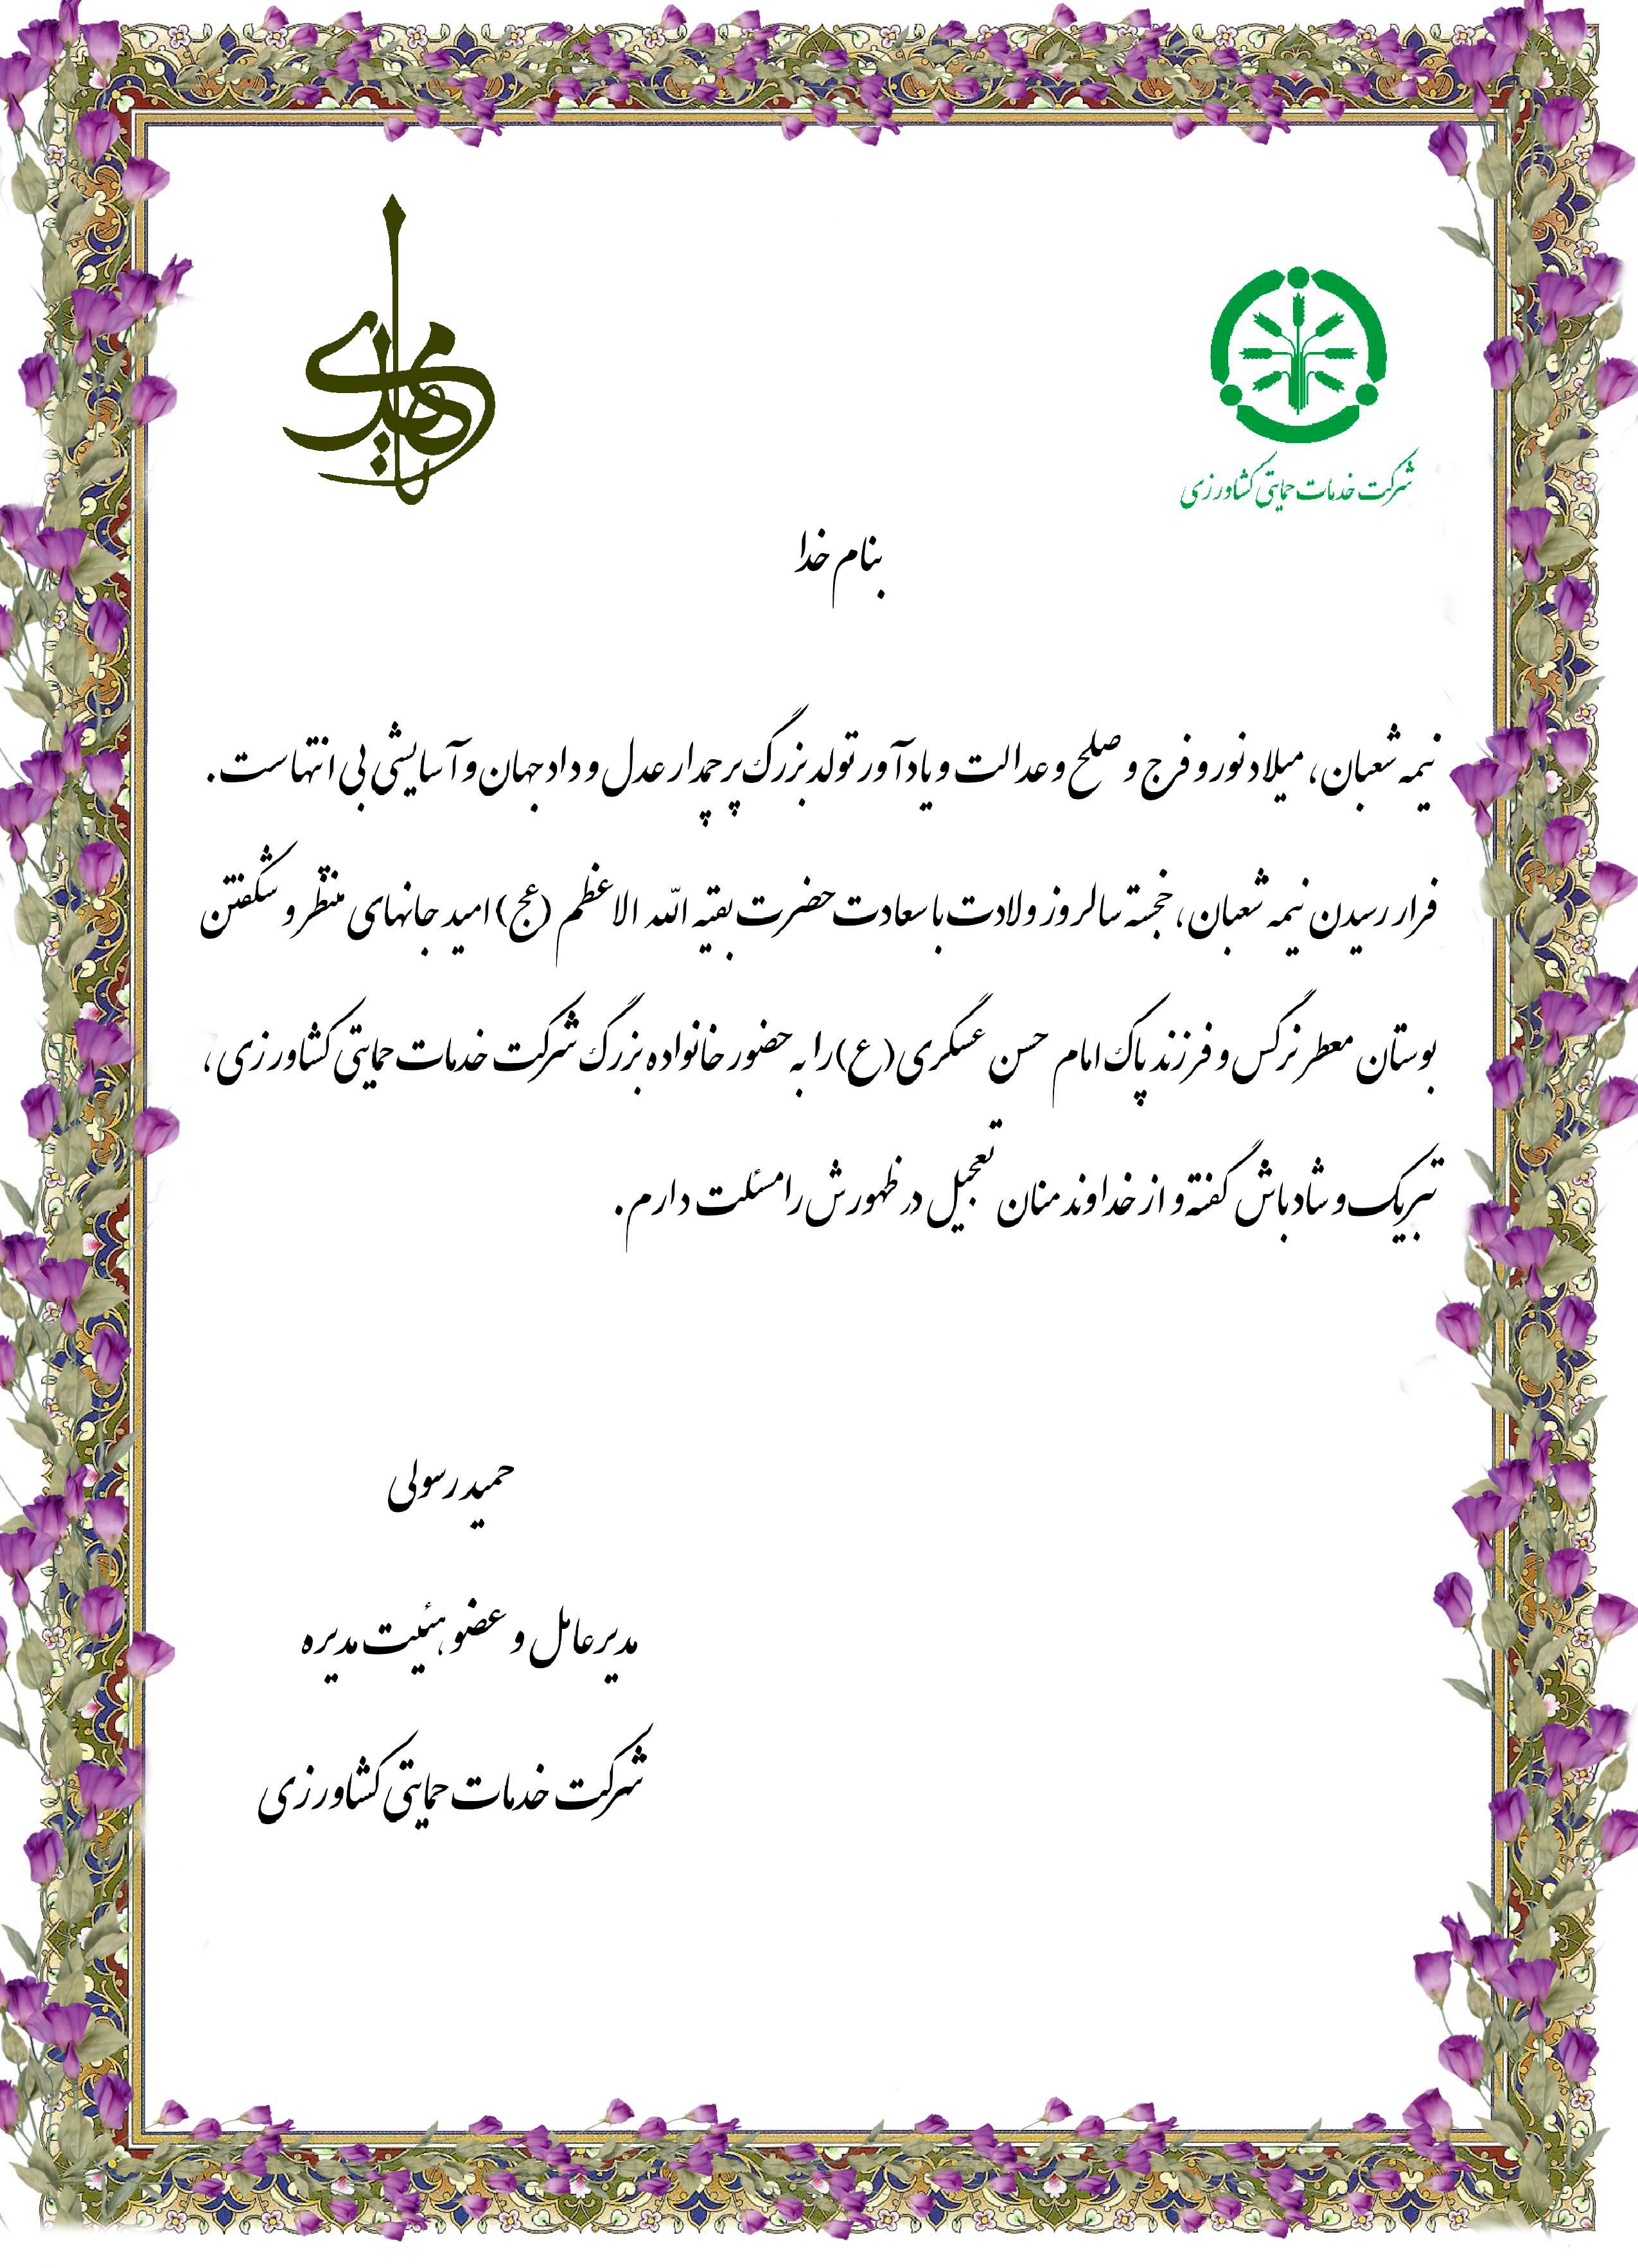 یا مهدی
شرکت خدمات حمایتی کشاورزی
بنام خدا
نیمه شعبان، میلاد نور و فرج و صلح و عدالت و یادآور تولد بزرگ پرچمدار عدل و داد جهان و آسایشی بی انتهاست.
فرار رسیدن نیمه شعبان، خجسته سالروز ولادت با سعادت حضرت بقیه الله الاعظم (عج) امید جانهای منتظر و شکفتن
بوستان معطر نرگس و فرزند پاک امام حسن عسگری (ع) را به حضور خانواده بزرگ شرکت خدمات حمایتی کشاورزی،
تبریک و شادباش گفته و از خداوند منان تعجیل در ظهورش را مسئلت دارم.
حمید رسولی
مدیرعامل و عضو هئیت مدیره
شرکت خدمات حمایتی کشاورزی